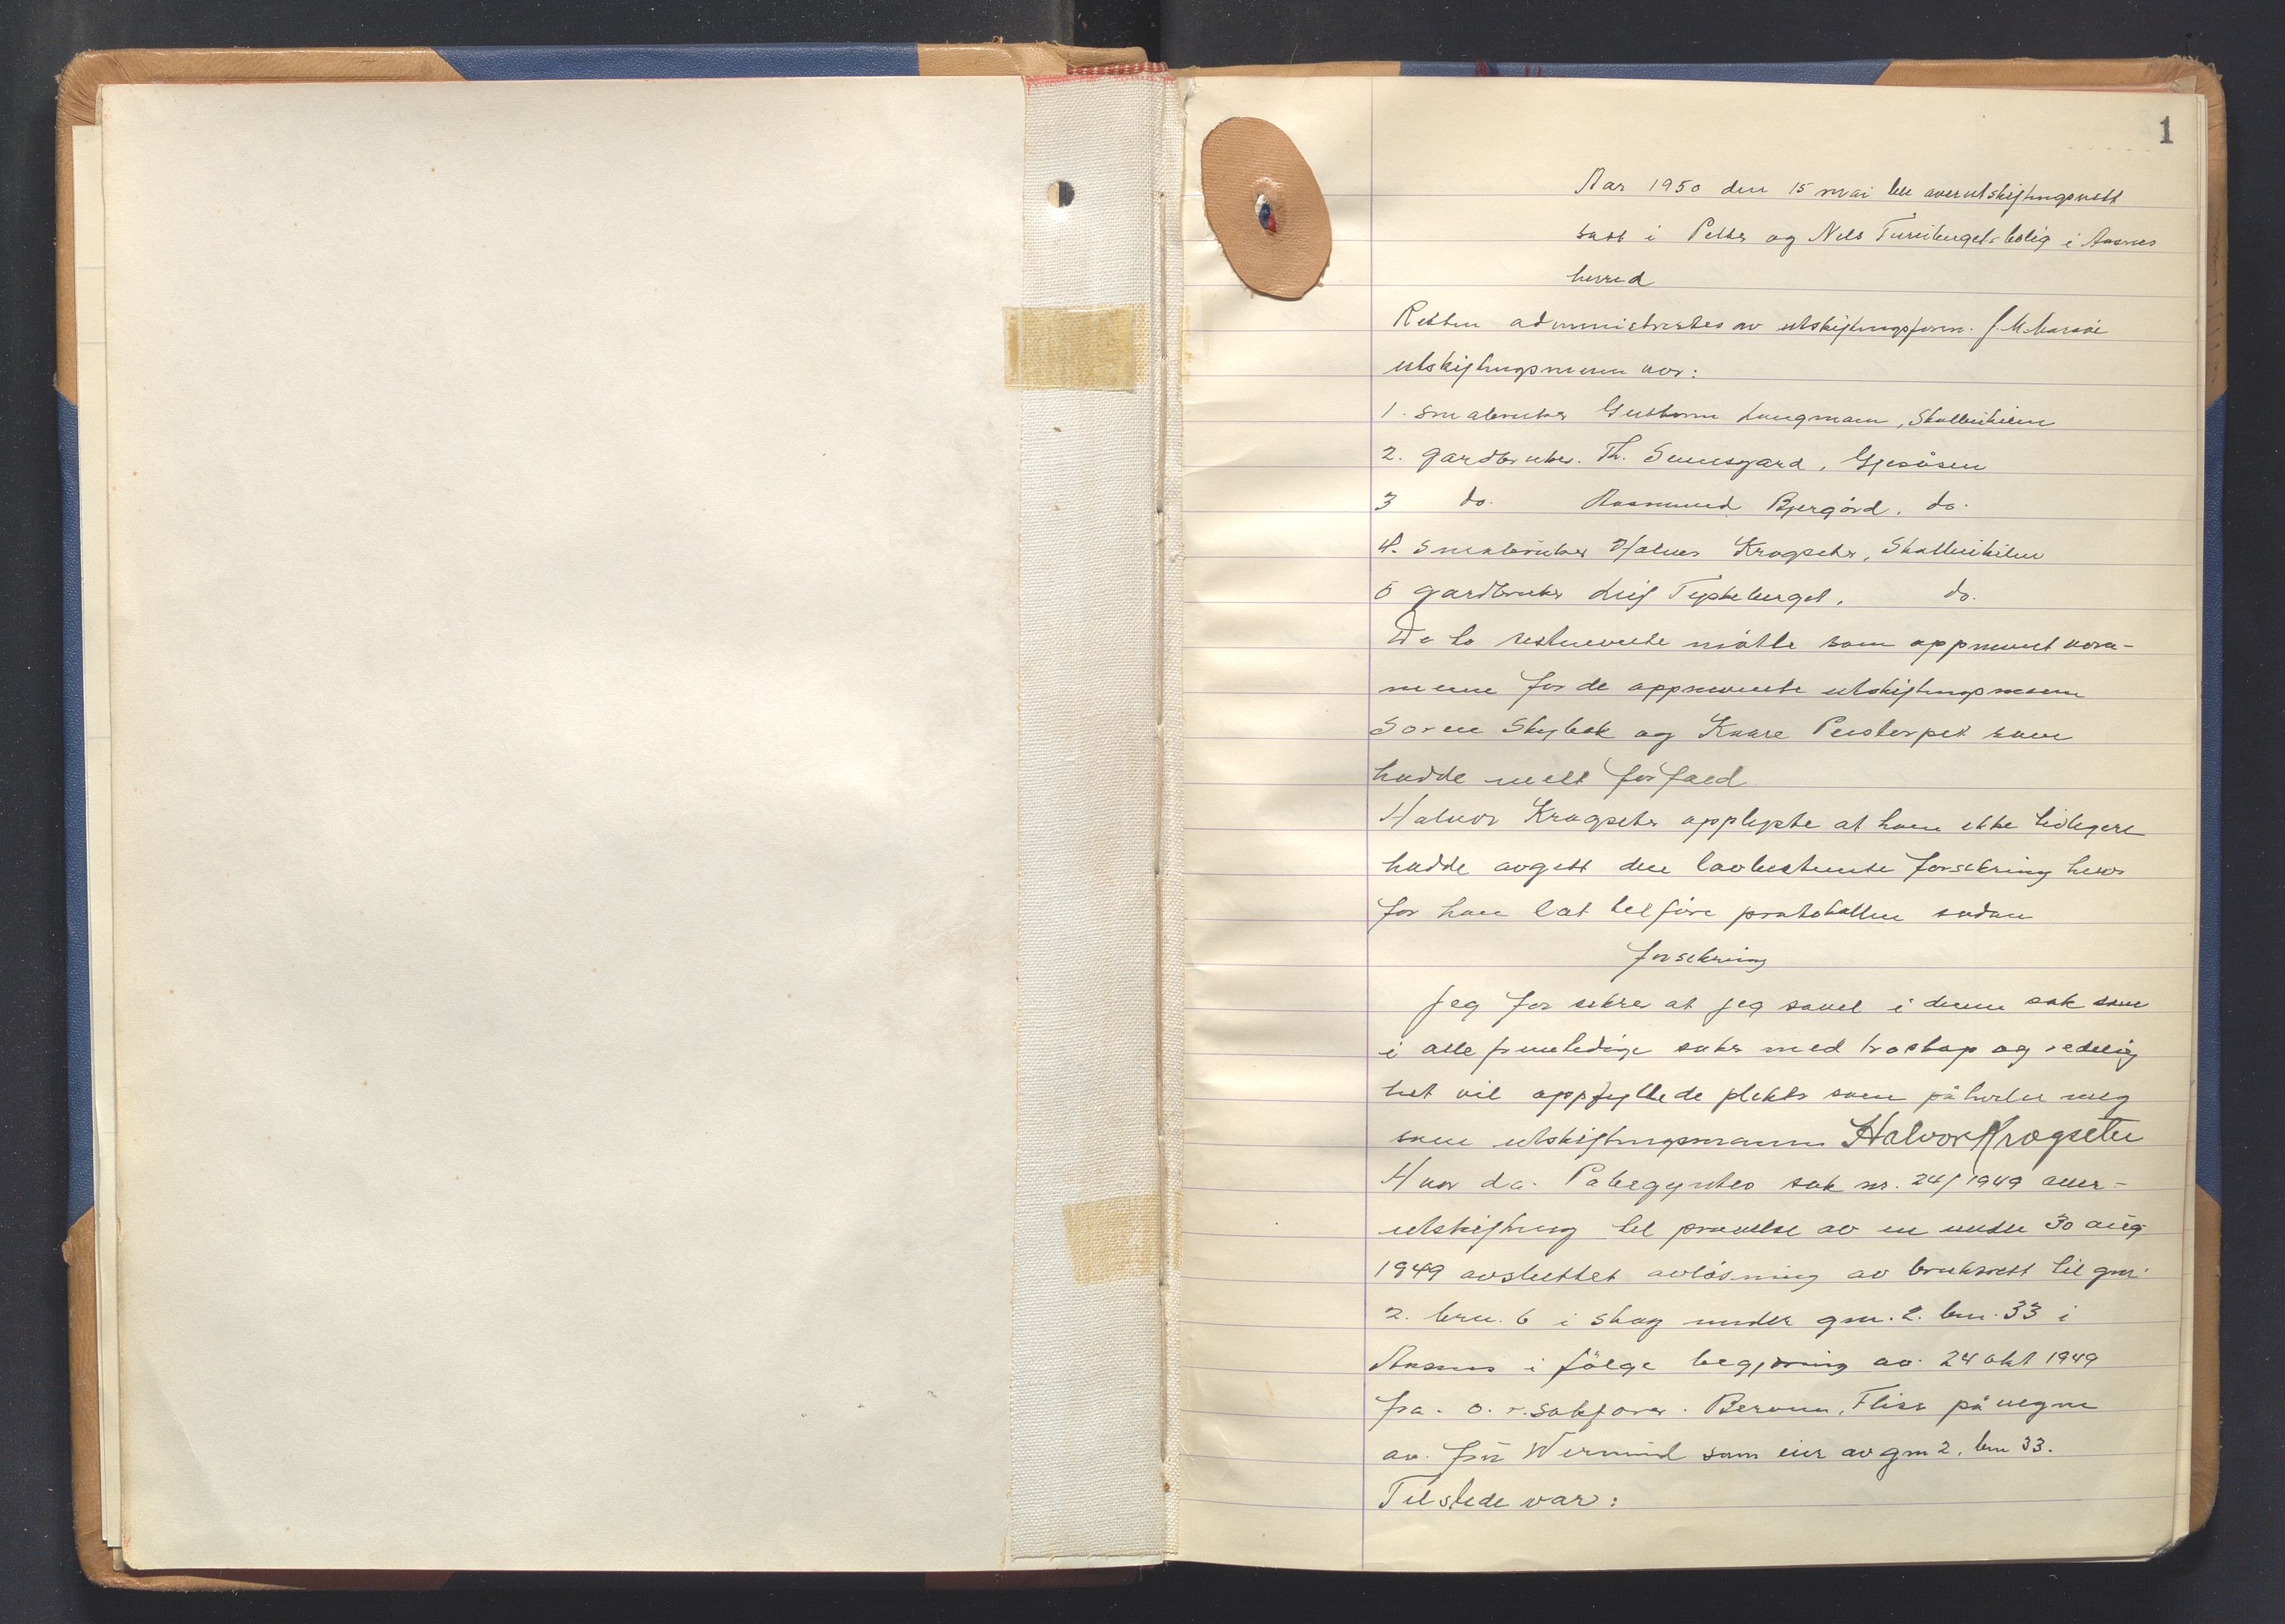 1
Aar 1950 den 15 mai ble overutskiftningsrett
satt i Petter og Nils Tureberget's bolig i Aasnes
herred
Retten administrertes av utskiftningsform.
utskiftningsmenn var:
1. småbruker Guttorm Langmann, Skallerhilen
2. gardbruker. Th. Sennesgard, Gjesåsen
3 do. Aasmund Bjergård. do.
4. småbruker Halvor Krogseter, Skallerhilen
5 gardbruker Leif Tyskeberget. do.
De to sistnevnte måtte som oppnevnt vara-
menn for de oppnevnte utskiftningsmenn
Soren Skybak og Kaare Pensterpet som
hadde meldt forfald
Halvor Krogseter opplyste at han ikke tidligere
hadde avgitt den lovbestemte forsikring hvor
for han lot tilføre protokollen sådan
forsikring
Jeg forsikrer at jeg såvel i denne sak som
i alle fremtidige saker med troskap og redelig
het vil oppfylle de plikter som påhviler meg
som utskiftningsmann Halvor Krogseter
Hvor da. Påbegyntes sak nr. 24/1949 over-
utskiftning til prøvelse av en under 30 aug
1949 avsluttet avløsning av bruksrett til gnr.
2. brn. 6 i skog under gnr. 2. bnr. 33 i
Aasnes i følge begjæring av. 24 okt 1949
fra. o. r. sakfører. Berven, Flisa på vegne
av. fru Wermund som eier av gnr 2. bnr 33.
Tilstede var: